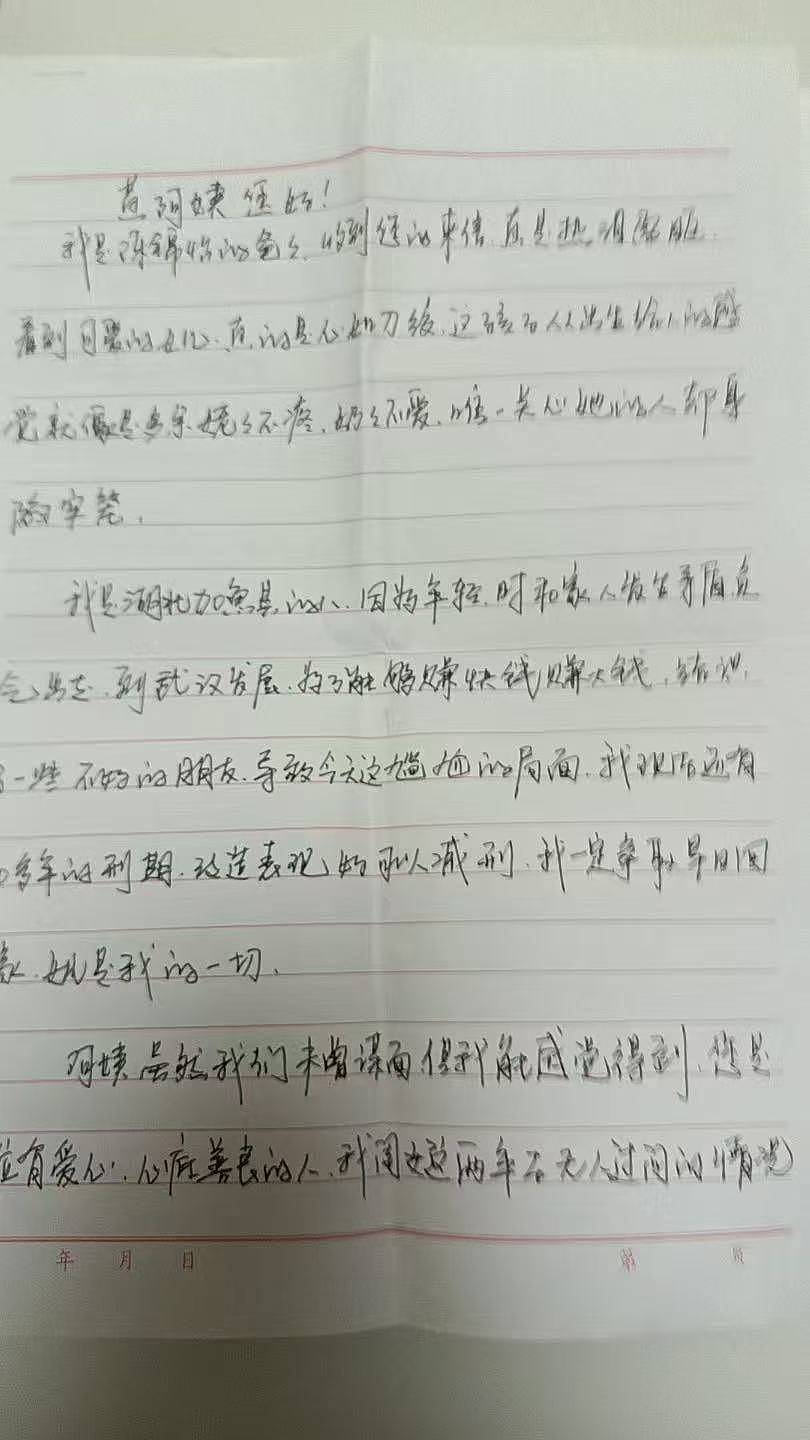 阿姨您好!
我是陈锦怡的爸爸,收到您的来信,真是热泪
看到日思的女儿,真的是心如刀绞,这孩子从出生给人的感
觉就像是多余,姥姥不疼,奶奶不爱,唯一关心她的人却身
陷牢笼,
我是湖北加鱼县的人,因为年轻时和家人发生矛盾负
气出走,到武汉发展,为了能够赚快钱赚大钱,结识
了一些不好的朋友,导致今天这尴尬的局面,我现在还有
多年的刑期,改造表现好可以减刑,我一定争取早日回
家,她是我的一切,
阿姨虽然我们未曾谋面但我能感觉得到,您是
位有爱心,心底善良的人,我闺女这两年在无人过问的情况
年 月 日 第 页